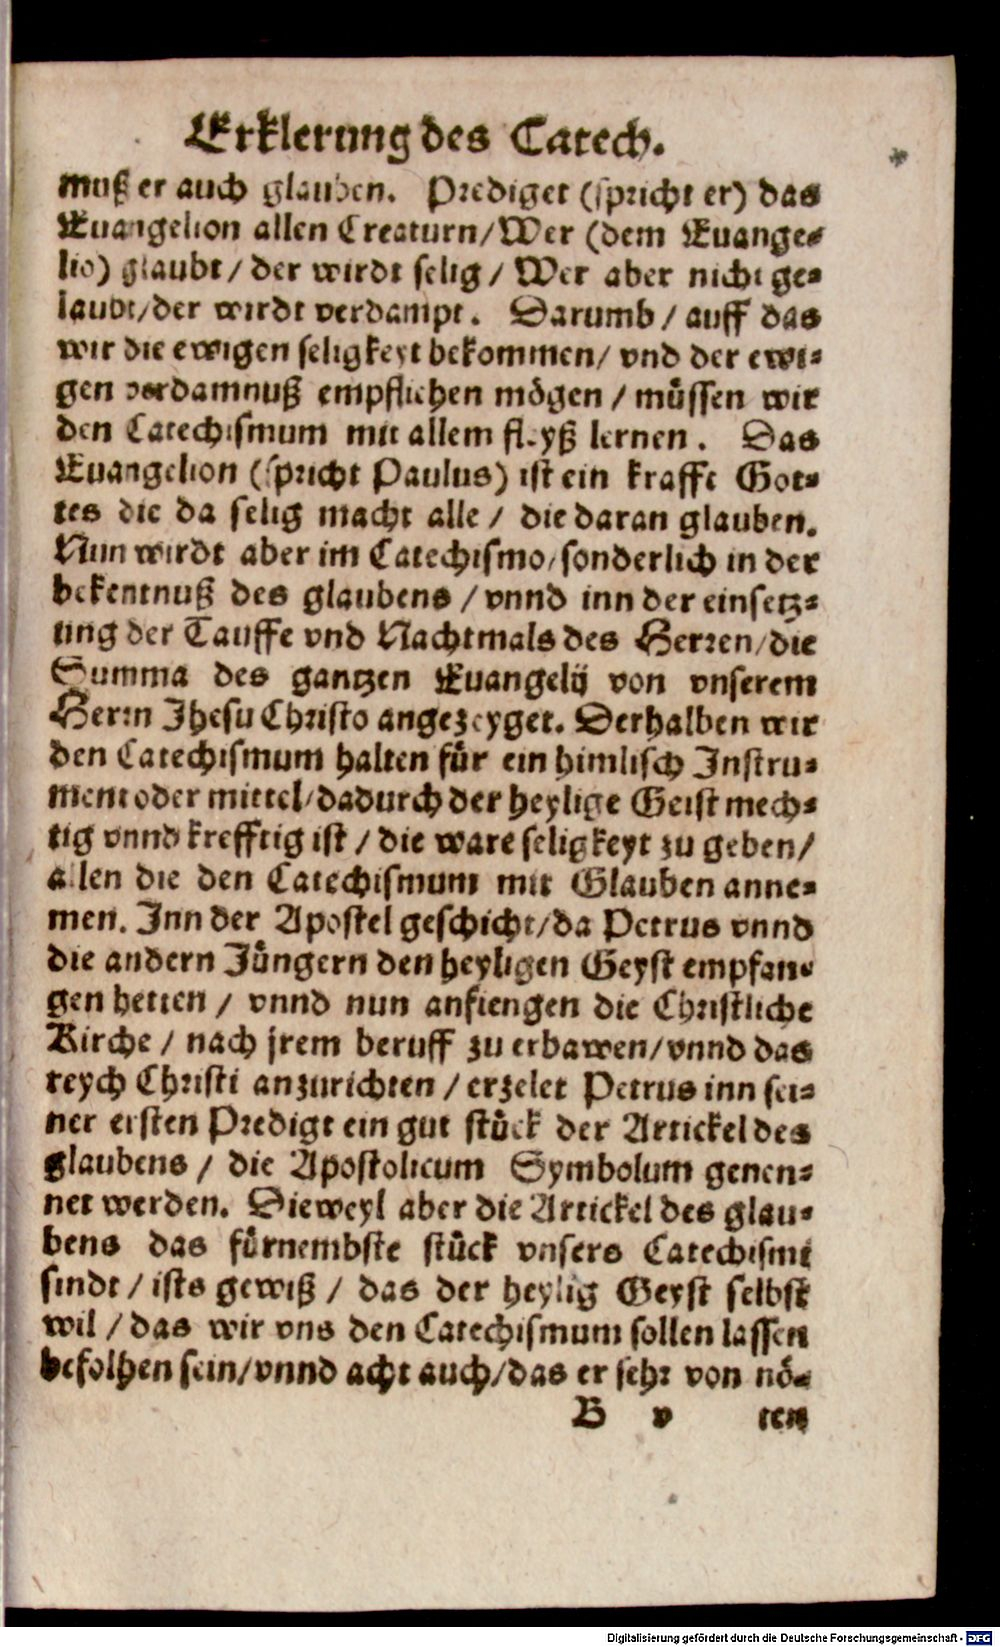 Erklerung des Catech.
muß er auch glauben. Prediget (spricht er) das
Euangelion allen Creaturn/Wer (dem Euange-
lio) glaubt/der wirdt selig/Wer aber nicht ge-
laubt/der wirdt verdampt. Darumb/auff das
wir die ewigen seligkeyt bekommen/vnd der ewi-
gen verdamnuß empfliehen mögen/müssen wir
den Catechismum mit allem fleyß lernen. Das
Euangelion (spricht Paulus) ist ein krafft Got-
tes die da selig macht alle/die daran glauben.
Nun wirdt aber im Catechismo/sonderlich in der
bekentnuß des glaubens/vnnd inn der einsetz-
ung der Tauffe vnd Nachtmals des Herren/die
Summa des gantzen Euangelij von vnserem
Herrn Jhesu Christo angezeyget. Derhalben wir
den Catechismum halten für ein himlisch Instru-
ment oder mittel/dadurch der heylige Geist mech-
tig vnnd krefftig ist/die ware seligkeyt zu geben/
allen die den Catechismum mit Glauben anne-
men. Inn der Apostel geschicht/da Petrus vnnd
die andern Jüngern den heyligen Geyst empfan-
gen hetten/vnnd nun anfiengen die Christliche
Kirche/nach jrem beruff zu erbawen/vnnd das
reych Christi anzurichten/erzelet Petrus inn sei-
ner ersten Predigt ein gut stück der Artickel des
glaubens/die Apostolicum Symbolum genen-
net werden. Dieweyl aber die Artickel des glau-
bens das fürnembste stück vnsers Catechismi
sindt/ists gewiß/das der heylig Geyst selbst
wil/das wir vns den Catechismum sollen lassen
befolhen sein/vnnd acht auch/das er sehr von nö-
B v ten
Digitalisierung gefördert durch die Deutsche Forschungsgemeinschaft - DFG